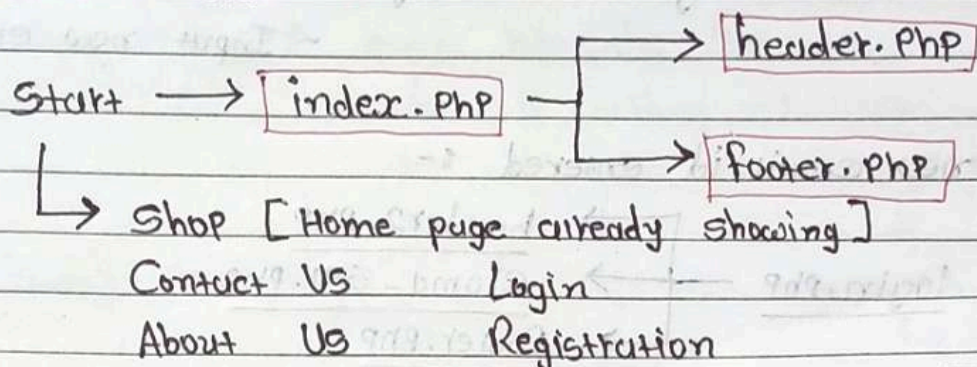 header.php
Start → index.php
footer.php
Shop [Home page already showing]
Contact Us Login
About Us Registration